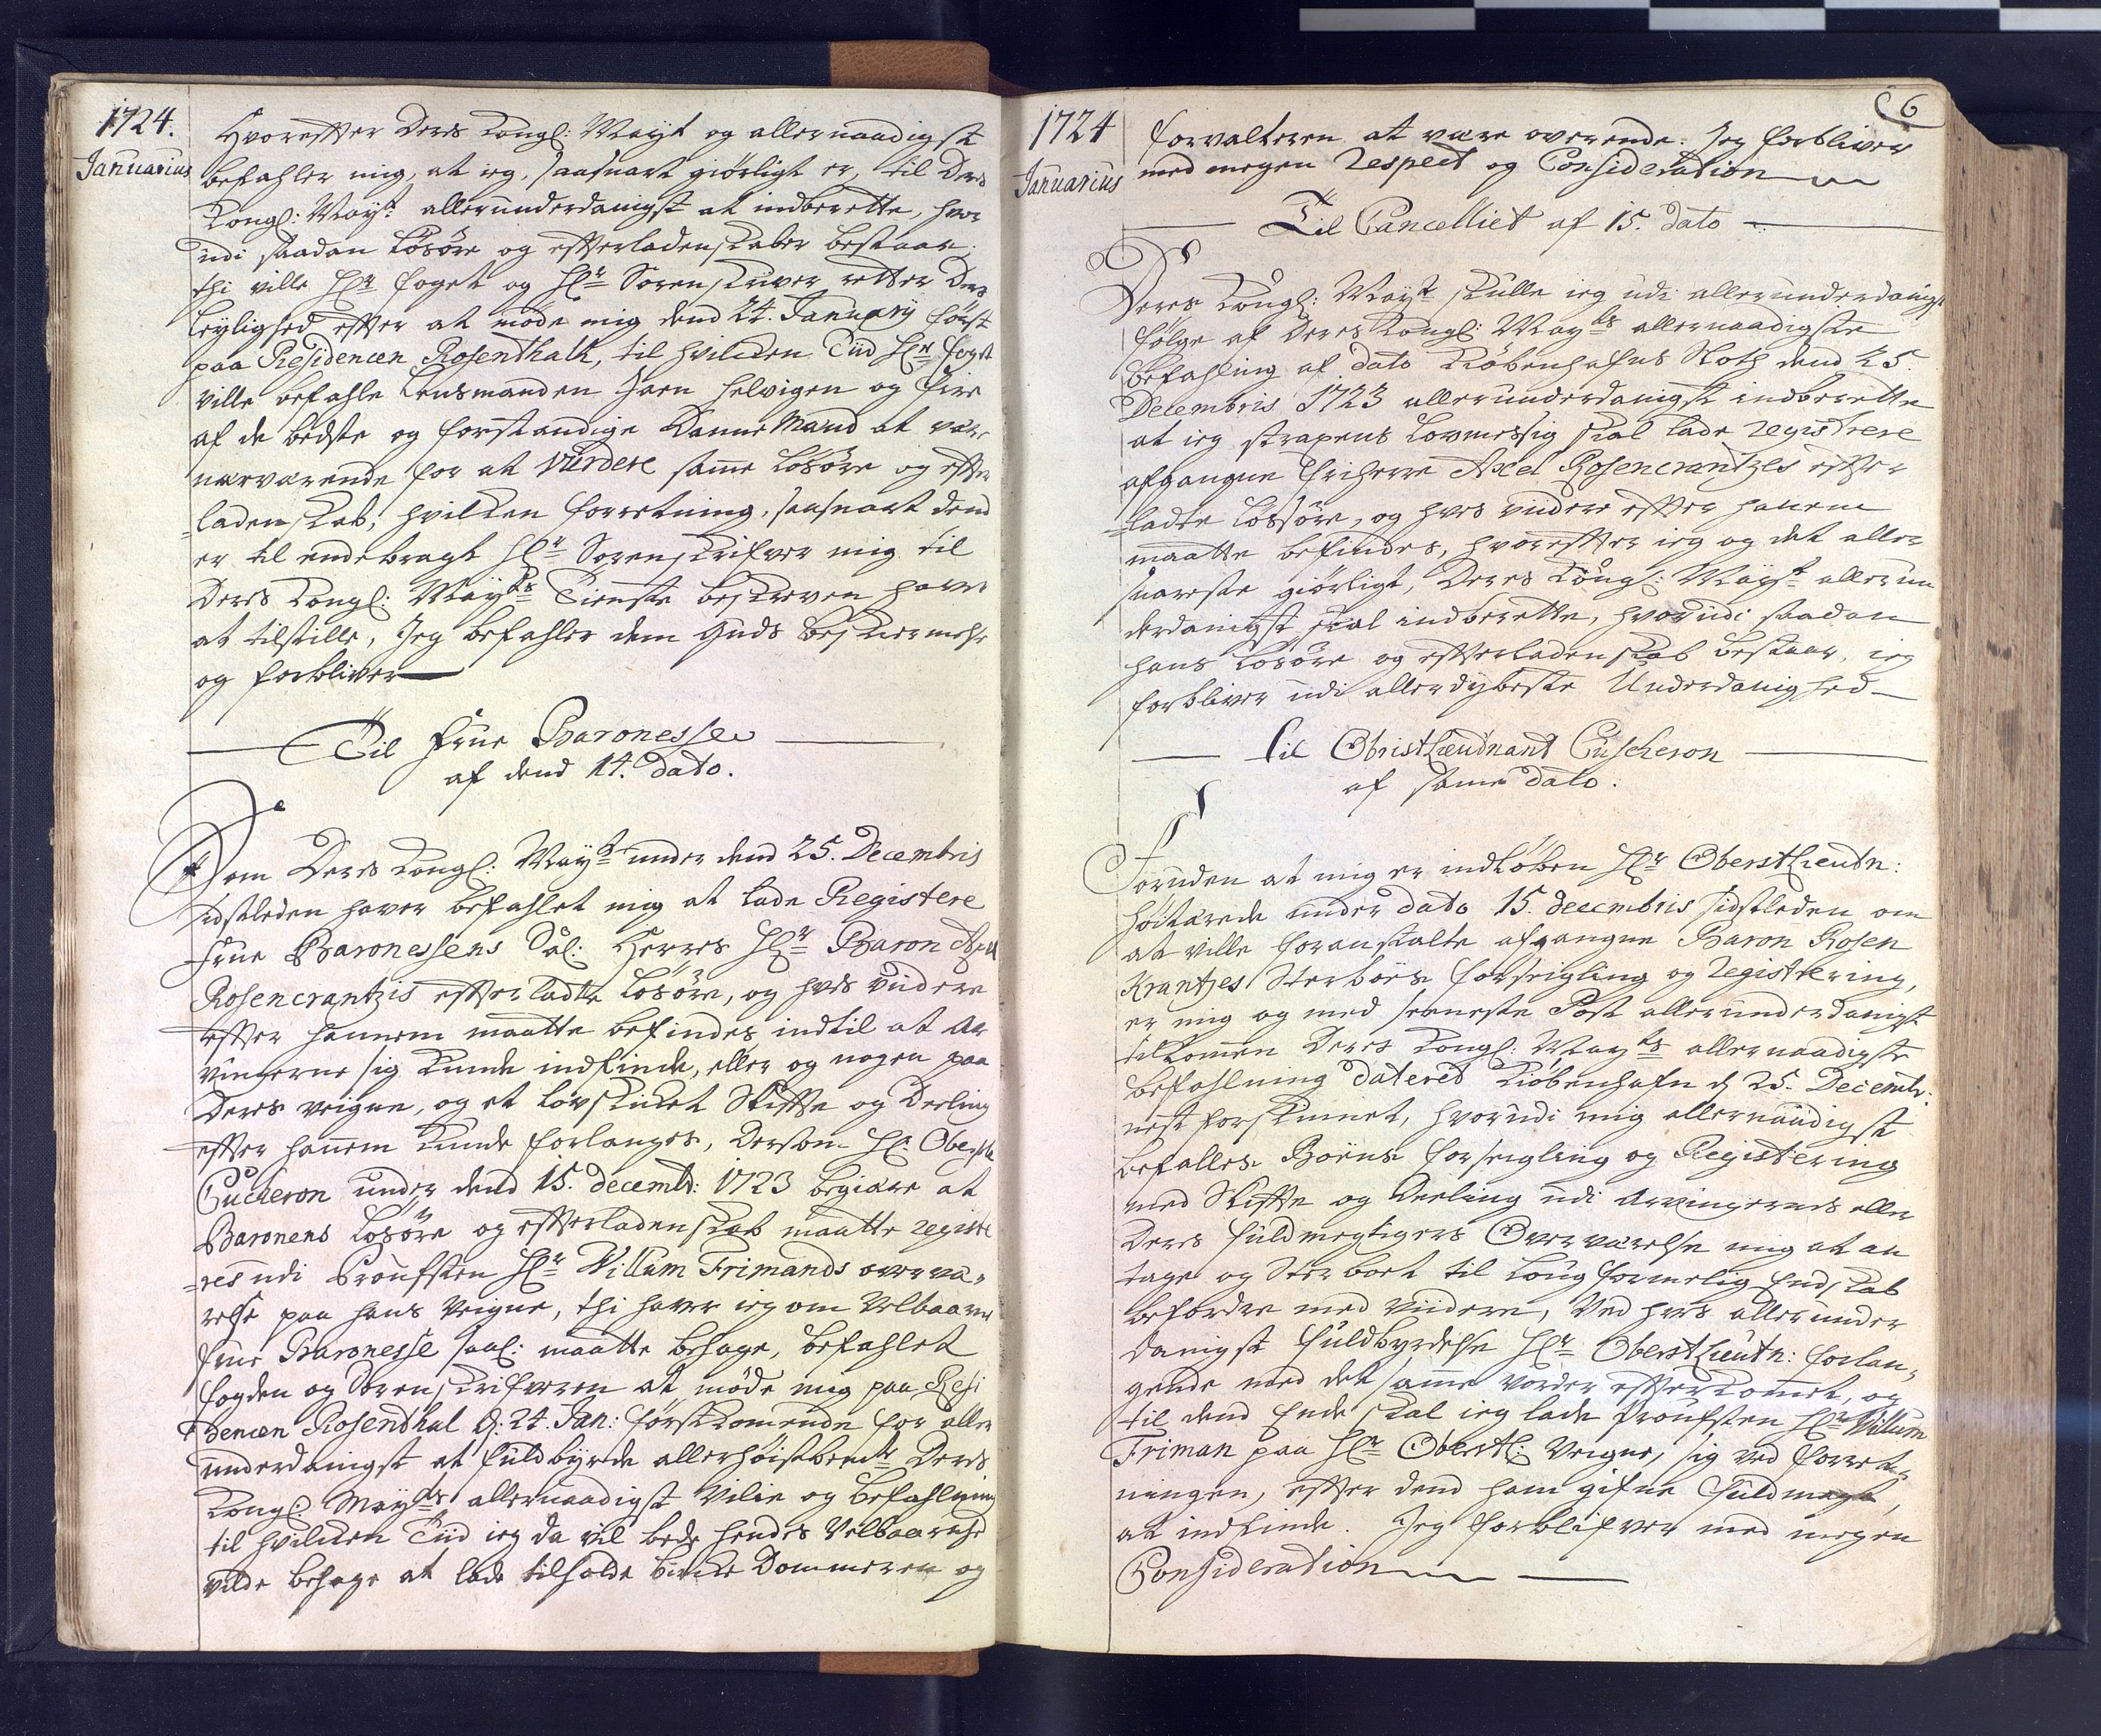 1724.
Januarius
Hvorefter Deres Kongl: Mayt og allernaadigst
befahler mig, at ieg, saasnart giørligt er, til Deres
Kongl: Mayt allerunderdanigst at indberette, hvor
udi saadan Løsøre og efterladenskaber bestaar.
thi ville Hr foget og Hr Sorenskriver retter Deres
leylighed efter at møde mig dend 24. January først
paa Residencen Rosenthall, til hvilcken Tiid Hr foget
ville befahle Lensmanden Joen Helvigen og fire
af de bedste og forstandige Danne Mænd at være
nærværende for at Vurdere samme Løsøre og effter
=ladenskab, hvilcken forretning, saasnart dend
er til ende bragt Hr Sorenskrifver mig til
Deres Kongl: Mayts Tieniste beskreven haver
at tilstille, Jeg befahler dem Guds beskiermelse
og forbliver
Til Frue Baronesse
af dend 14. dato.
Som Deres Kongl: Mayt under dend 25. Decembris
sidstleden haver befahlet mig at lade Registere
Frue Baronessens Sål: Herres Hr Baron Axel
Rosencrantzis effterladte Løsøre, og hves viidere
effter hannem maatte befindes, indtil at Ar
vingerne sig kunde indfinde, eller og nogen paa
Deres veigne, og et lovskicket Skiffte og Deeling
effter hannem kunde forlanges, Dersom Hr: Oberste
Cucheron under dend 15. decembr: 1723 begiære at
Baronens Løsøre og effterladenskab maatte registe
=res udi Proufsten Hr Villum Frimands overvæ-
relse paa hans Veigne, thi haver ieg om Velbaarne
frue Baronesse saal: maatte behage, befahlet
fogden og Sorenskrifveren at møde mig paa Resi
dencen Rosendhal d: 24. Jan: førstkomende for aller
underdanigst at fuldbyrde allerhøistbemte Deres
Kongl: Mayts allernaadigst Vilie og befahlning
til hvilcken Tiid ieg da vil bede hendes Velbaarenhed
vilde behage at lade tilholde bircke Dommeren og
6
1724
Januarius
forvalteren at være overende. Jeg forbliver
med megen Respect og Consideration
Til Cancelliet af 15. dato
Deres Kongl: Mayt skulle ieg udi allerunderdanigst
følge af Deres Kongl: Mayts allernaadigste
befahling af dato Kiøbenhafns Slot dend 25.
Decembris 1723 allerunderdanigst indberette
at ieg strapens lovmessig skal lade registrere
afgangne friherre Axel Rosencrantzes effter
=ladte Løssøre, og hves viidere effter hannem
maatte befindes, hvoreffter ieg og det aller
snareste giørligt, Deres Kongl: Mayt allerun
derdanigst skal indberette, hvorudi saadan
hans Løsøre og effterladenskab bestaar, ieg
forbliver udi allerdybeste Underdanighed
Til Obristlieutnant Cuscheron
af samme dato.
Foruden at mig er indløben Hr Oberstlieutn:
høitærede under dato 15. decembris sidstleden om
at ville foranstalte afgangne Baron Rosen
Krantzes Sterboes forseigling og Registrering,
er mig og med seeneste Post allerunderdanigst
tilkommen Deres Kongl: Mayts allernaadigste
befahlning dateret Kiøbenhafn d 25. Decembr:
nest forskinnet, hvorudi mig allernaadigst
befalles Boens forseigling og Registering
med Skiffte og Deeling udi Arvingernes eller
Deres fuldmegtigers Overværelse mig at an
tage og Sterboet til Loug formelig Endskab
befordre med viidere, Ved hves allerunder
danigst fuldbyrdelse Hr Oberstlieutn: forlan-
gende med det samme vorder effterkommet, og
til dend Ende skal ieg lade Proufsten Hr Villum
Friman paa Hr Oberstl: Veigne, sig ved forret-
ningen, effter dend ham gifne fuldmagt,
at indfinde. Jeg forblifver med megen
Consideration